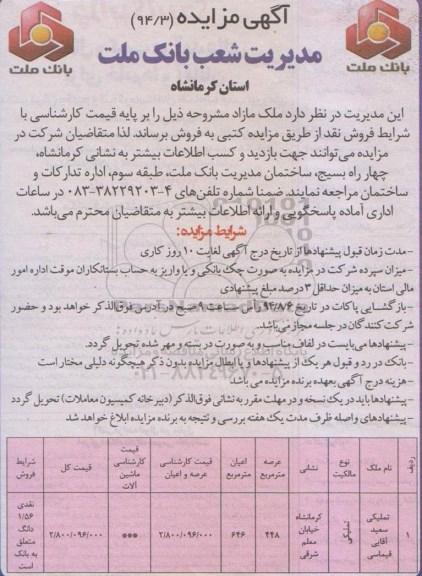 آگهی مزایده (۹۴/۳)
مدیریت شعب بانک ملت
بانک ملت
بانک ملت
استان کرمانشاه
این مدیریت در نظر دارد ملک مازاد مشروحه ذیل را بر پایه قیمت کارشناسی با
شرایط فروش نقد از طریق مزایده کتبی به فروش برساند. لذا متقاضیان شرکت در
مزایده می‌توانند جهت بازدید و کسب اطلاعات بیشتر به نشانی کرمانشاه،
چهار راه بسیج، ساختمان مدیریت بانک ملت، طبقه سوم، اداره تدارکات و
ساختمان مراجعه نمایند. ضمنا شماره تلفن‌های ۴-۳۸۲۲۹۲۰۳-۰۸۳ در ساعات
اداری آماده پاسخگویی و ارائه اطلاعات بیشتر به متقاضیان محترم می‌باشد.
شرایط مزایده:
-مدت زمان قبول پیشنهادها از تاریخ درج آگهی لغایت ۱۰ روز کاری
-میزان سپرده شرکت در مزایده به صورت چک بانکی و یا واریز به حساب بستانکاران موقت اداره امور
مالی استان به میزان حداقل ۳ درصد مبلغ پیشنهادی
-بازگشایی پاکات در تاریخ ۹۴/۸/۶ راس ساعت ۹ صبح در آدرس فوق‌الذکر خواهد بود و حضور
شرکت کنندگان در جلسه مجاز می‌باشد.
-پیشنهادها می‌بایست در لفاف مناسب و به صورت در بسته و مهر شده تحویل گردد.
-بانک در رد و قبول هر یک از پیشنهادها و یا ابطال مزایده بدون ذکر هیچگونه دلیلی مختار است
-هزینه درج آگهی بعهده برنده مزایده می باشد
-پیشنهادها باید در یک نسخه و در مهلت مقرر به نشانی فوق‌الذکر (دبیرخانه کمیسیون معاملات) تحویل گردد
-پیشنهادهای واصله ظرف مدت یک هفته بررسی و نتیجه به برنده مزایده ابلاغ خواهد شد
۰۲۱-۸۸۳۴۹۶۷۰-۵
ردیف | نام ملک | نوع مالکیت | نشانی | عرصه مترمربع | اعیان مترمربع | قیمت کارشناسی عرصه و اعیان | قیمت کارشناسی ماشین آلات | قیمت کل | شرایط فروش
۱ | تملیکی سعید آقایی قیماسی | تملیکی | کرمانشاه خیابان معلم شرقی | ۴۴۸ | ۶۴۶ | ۲/۸۰۰/۰۹۶/۰۰۰ | *** | ۲/۸۰۰/۰۹۶/۰۰۰ | نقدی ۱/۵۶ دانگ متعلق به بانک است